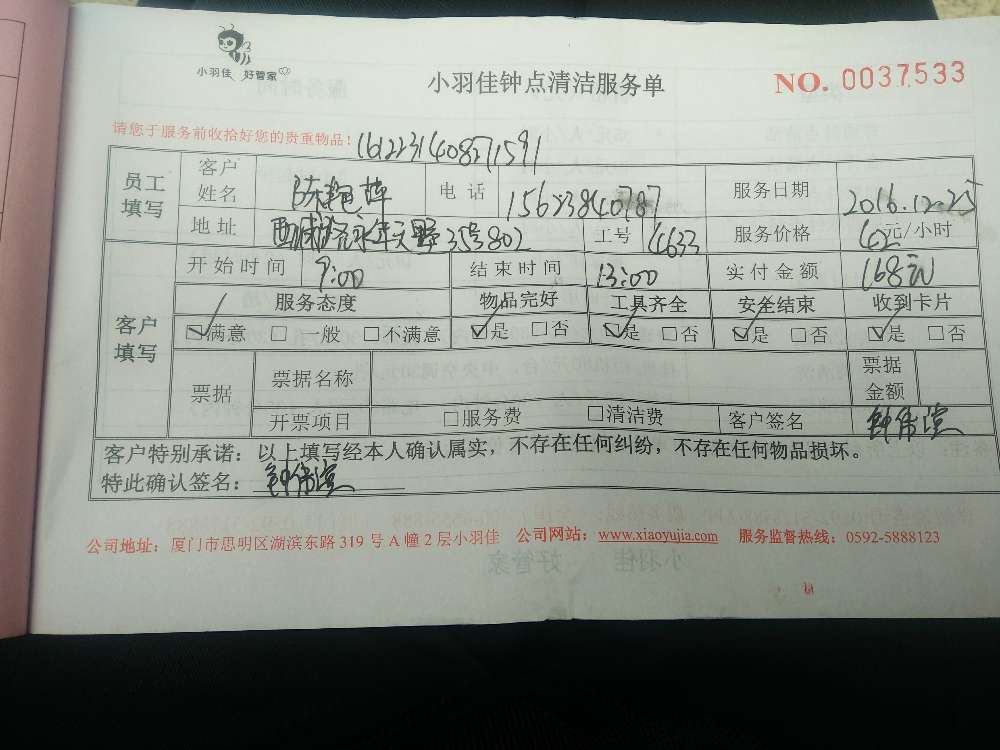 小羽佳 好管家
小羽佳钟点清洁服务单
NO. 0037533
请您于服务前收拾好您的贵重物品!
1612231408271591
员工填写
客户姓名 陈艳萍 电话 15623840787 服务日期 2016.12.25
地址 35号802 工号 4633 服务价格 元/小时
客户填写
开始时间 9:00 结束时间 13:00 实付金额 168元
服务态度 物品完好 工具齐全 安全结束 收到卡片
☑满意 □一般 □不满意 ☑是 □否 ☑是 □否 ☑是 □否 ☑是 □否
票据 票据名称 票据金额
开票项目 □服务费 □清洁费 客户签名 钟伟滨
客户特别承诺:以上填写经本人确认属实,不存在任何纠纷,不存在任何物品损坏。
特此确认签名: 钟伟滨
公司地址:厦门市思明区湖滨东路319号A幢2层小羽佳 公司网站:www.xiaoyujia.com 服务监督热线:0592-5888123